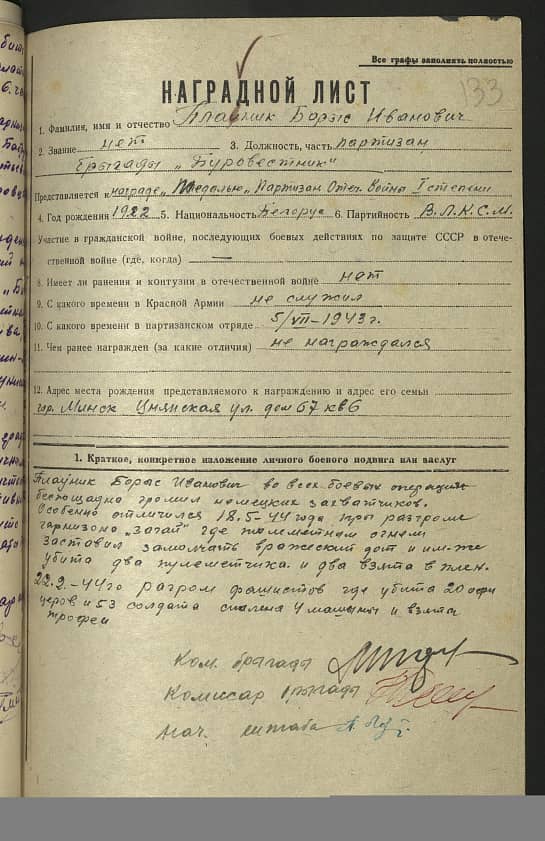 Все графы заполнять полностью
133
НАГРАДНОЙ ЛИСТ
1. Фамилия, имя и отчество Плаўник Борыс Иванович
2. Звание нет 3. Должность, часть партизан
брыгады „Буровестник"
Представляется к награде „Медалью „Партизан Отеч. Война I степени
4. Год рождения 1922 5. Национальность Белорус 6. Партийность В.Л.К.С.М.
Участие в гражданской войне, последующих боевых действиях по защите СССР в отече-
ственной войне (где, когда) —
8. Имеет ли ранения и контузии в отечественной войне нет
9. С какого времени в Красной Армии не служил
10. С какого времени в партизанском отряде 5/VII–1943 г.
11. Чем ранее награжден (за какие отличия) не награждался
12. Адрес места рождения представляемого к награждению и адрес его семьи
гор. Минск Цнянская ул. дом 67 кв 6
1. Краткое, конкретное изложение личного боевого подвига или заслуг
Плаўник Борыс Иванович во всех боевых операциях
беспощадно громил немецких захватчиков.
Особенно отличился 18.5-44 года пры разгроме
гарнизона где пулеметным огнем
заставил замолчать вражеский дот и им-же
убита два пулеметчика и два взята в плен.
22.2.-44го разгром фашистов где убита 20 офи
церов и 53 солдата спалена 4 машыны и взята
трофеи
Ком. брыгады
Комиссар брыгады
Нач. штаба